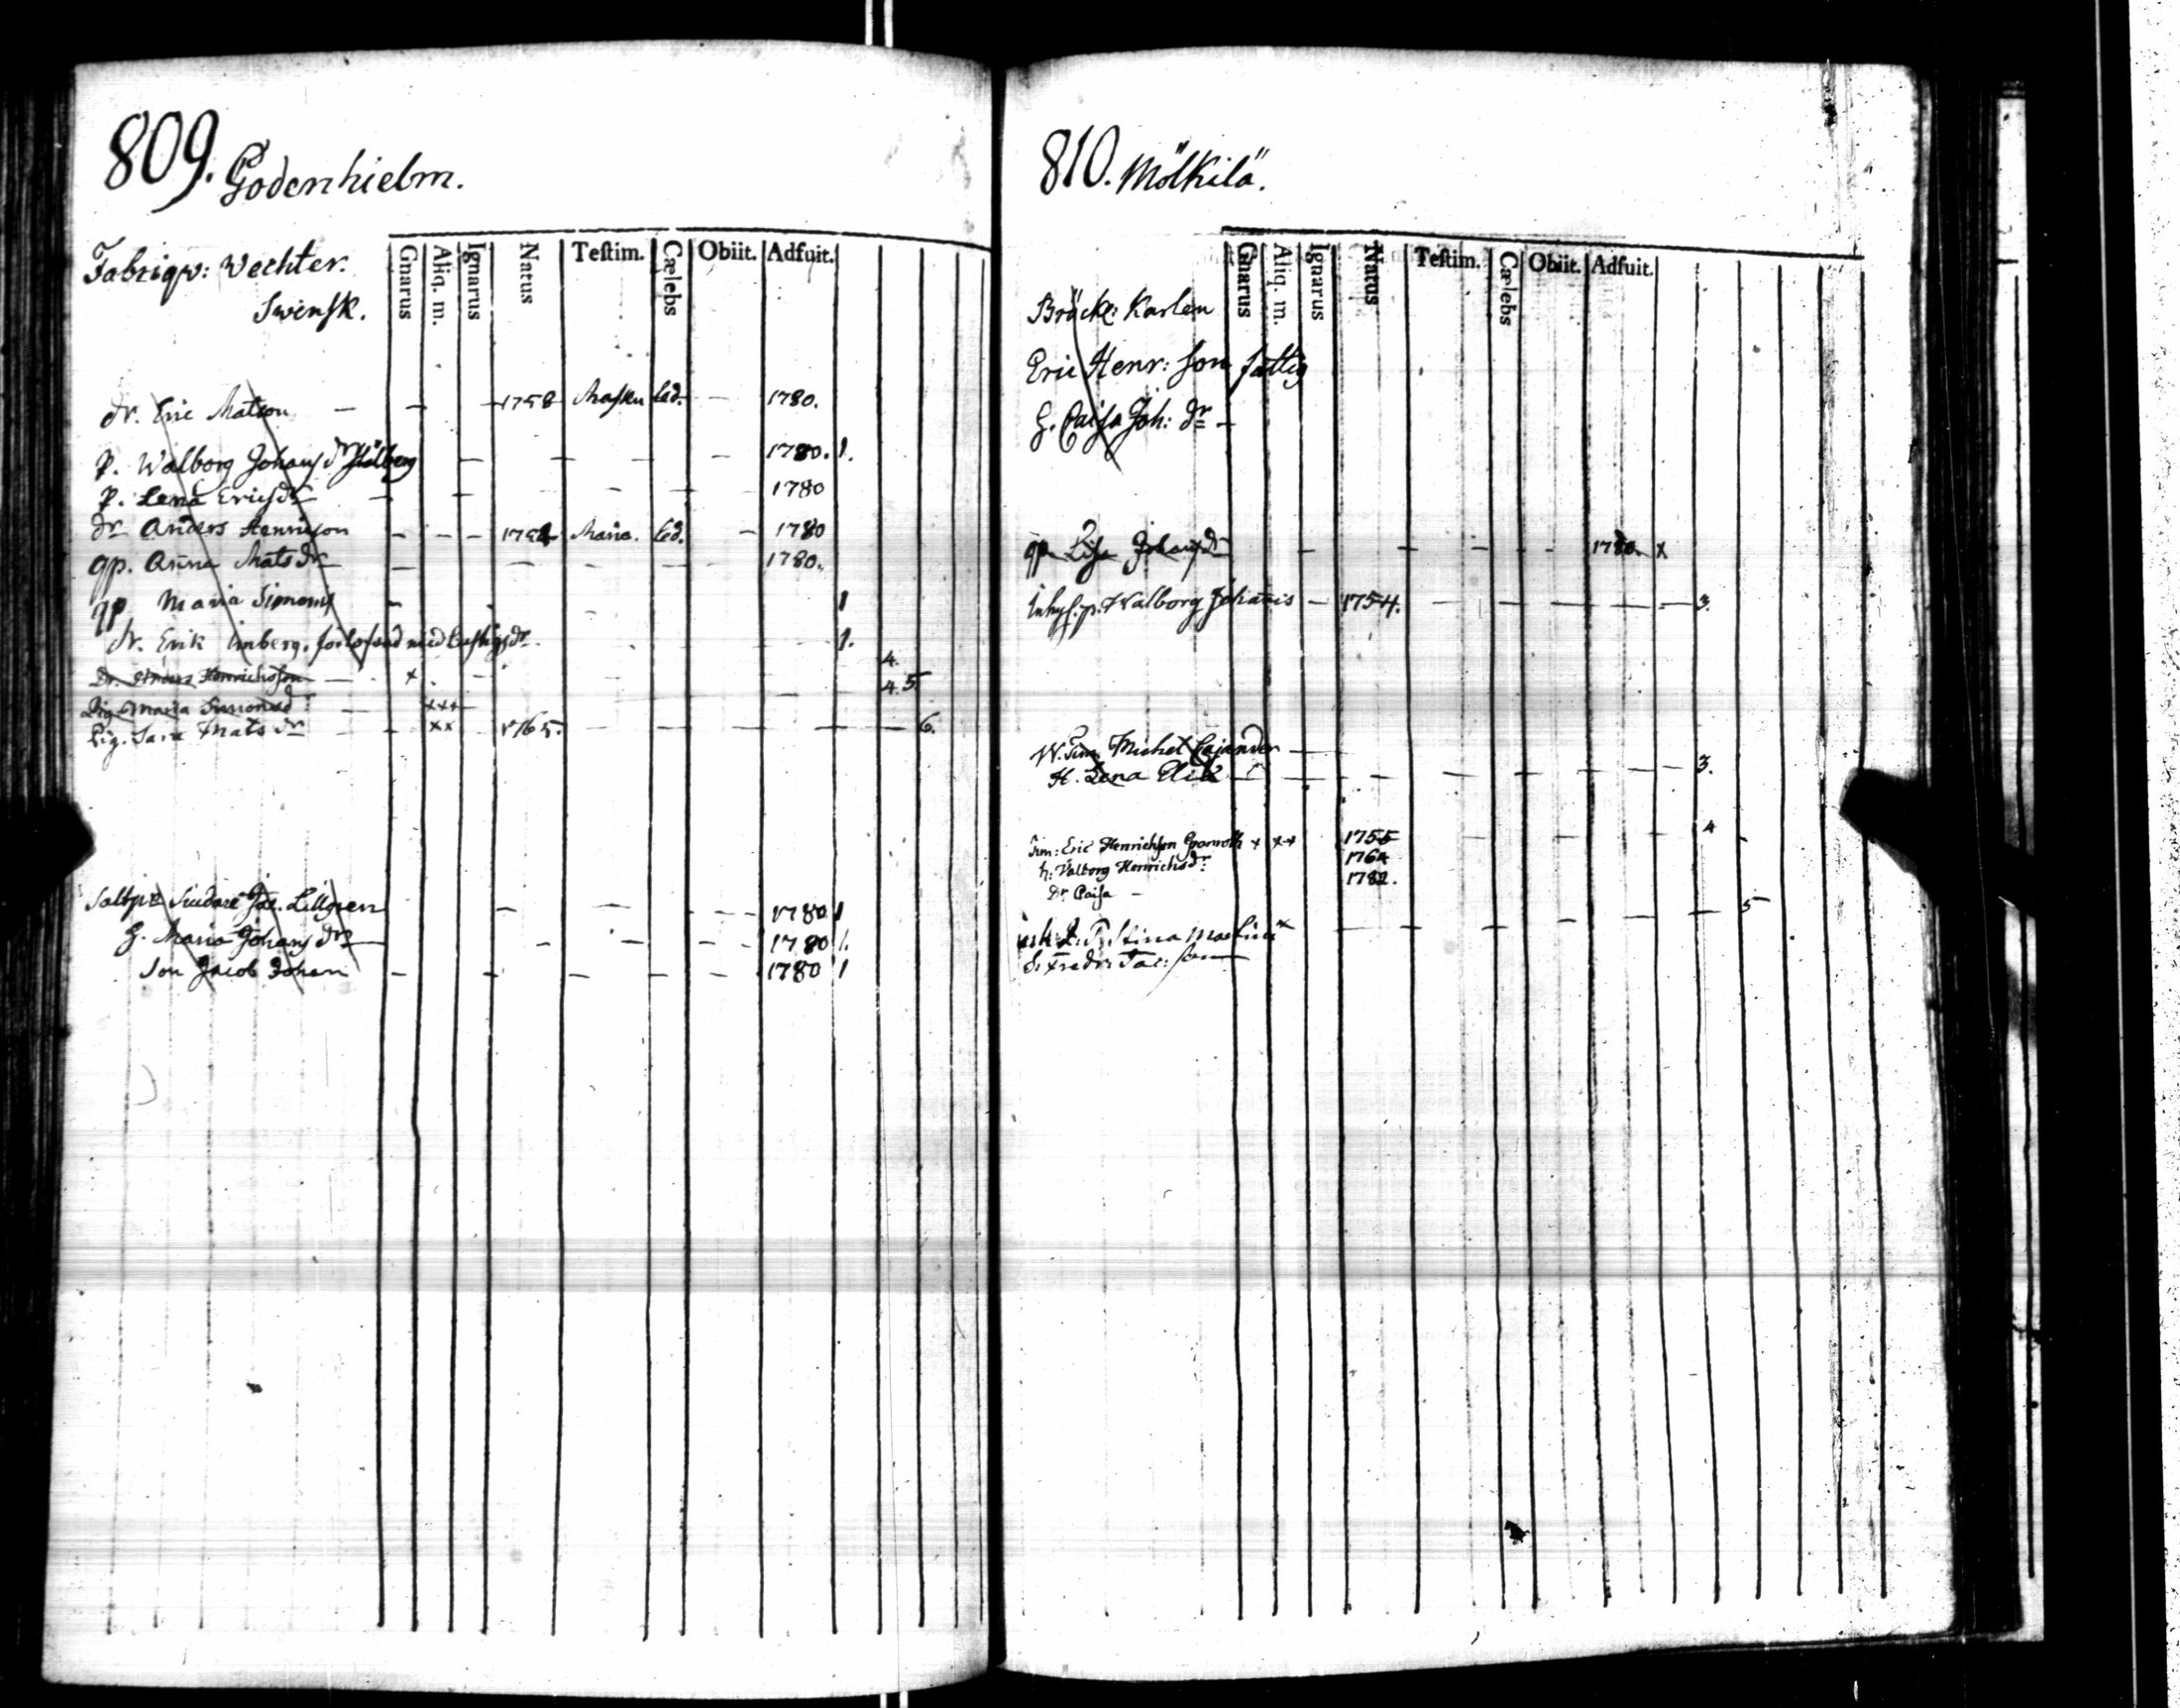 809. Godenhielm.
Gnarus Aliq. m. Ignarus Natus Teſtim. Cælebs Obiit. Adfuit.
Fabriqv: Wechter.
Swensk.
dr. Eric Matson — — 1758 Masku led. — 1780.
p. Walborg Johansdr — — — 1780. 1.
p. Lena Ericsdr — — — — — 1780
dr Anders Henricson — — — Maria. led. — 1780
qp. Anna Matsdr — — — — — — 1780.
qp Maria Simons — 1
dr. Erik förlofvad med 1.
4.
Dr. Anders Henrichsson — x 4. 5
Pig. Maria Simonsdr — xxx
Pig. Sara Matsdr — xx 1765. — — — — — 6.
Saltp: Siudare Jac. Lillgren — — — — 1780 1
H. Maria Johansdr — — — — — 1780 1.
Son Jacob Johan — — — — — 1780 1
810. Mölkilä.
Gnarus Aliq. m. Ignarus Natus Teſtim. Cælebs Obiit. Adfuit.
Bräckl: Karlen
Eric Henr: Son fattig
H. Caisa Joh: dr —
qp. Lisa Johansdr — — — — — 1780. x
Inhys. p. Walborg Johannis — 1754. — — — — — 3.
W. Tim. Michel Cajander —
H. Lena Elik — — — — — — — 3.
Tim: Eric Henrichson x xx 1755 — — — 4
h: Valborg Henrichsdr 176
Dr Caisa — 1782.
Stina x — — — — — — 5
S. Fredr: Jac: son